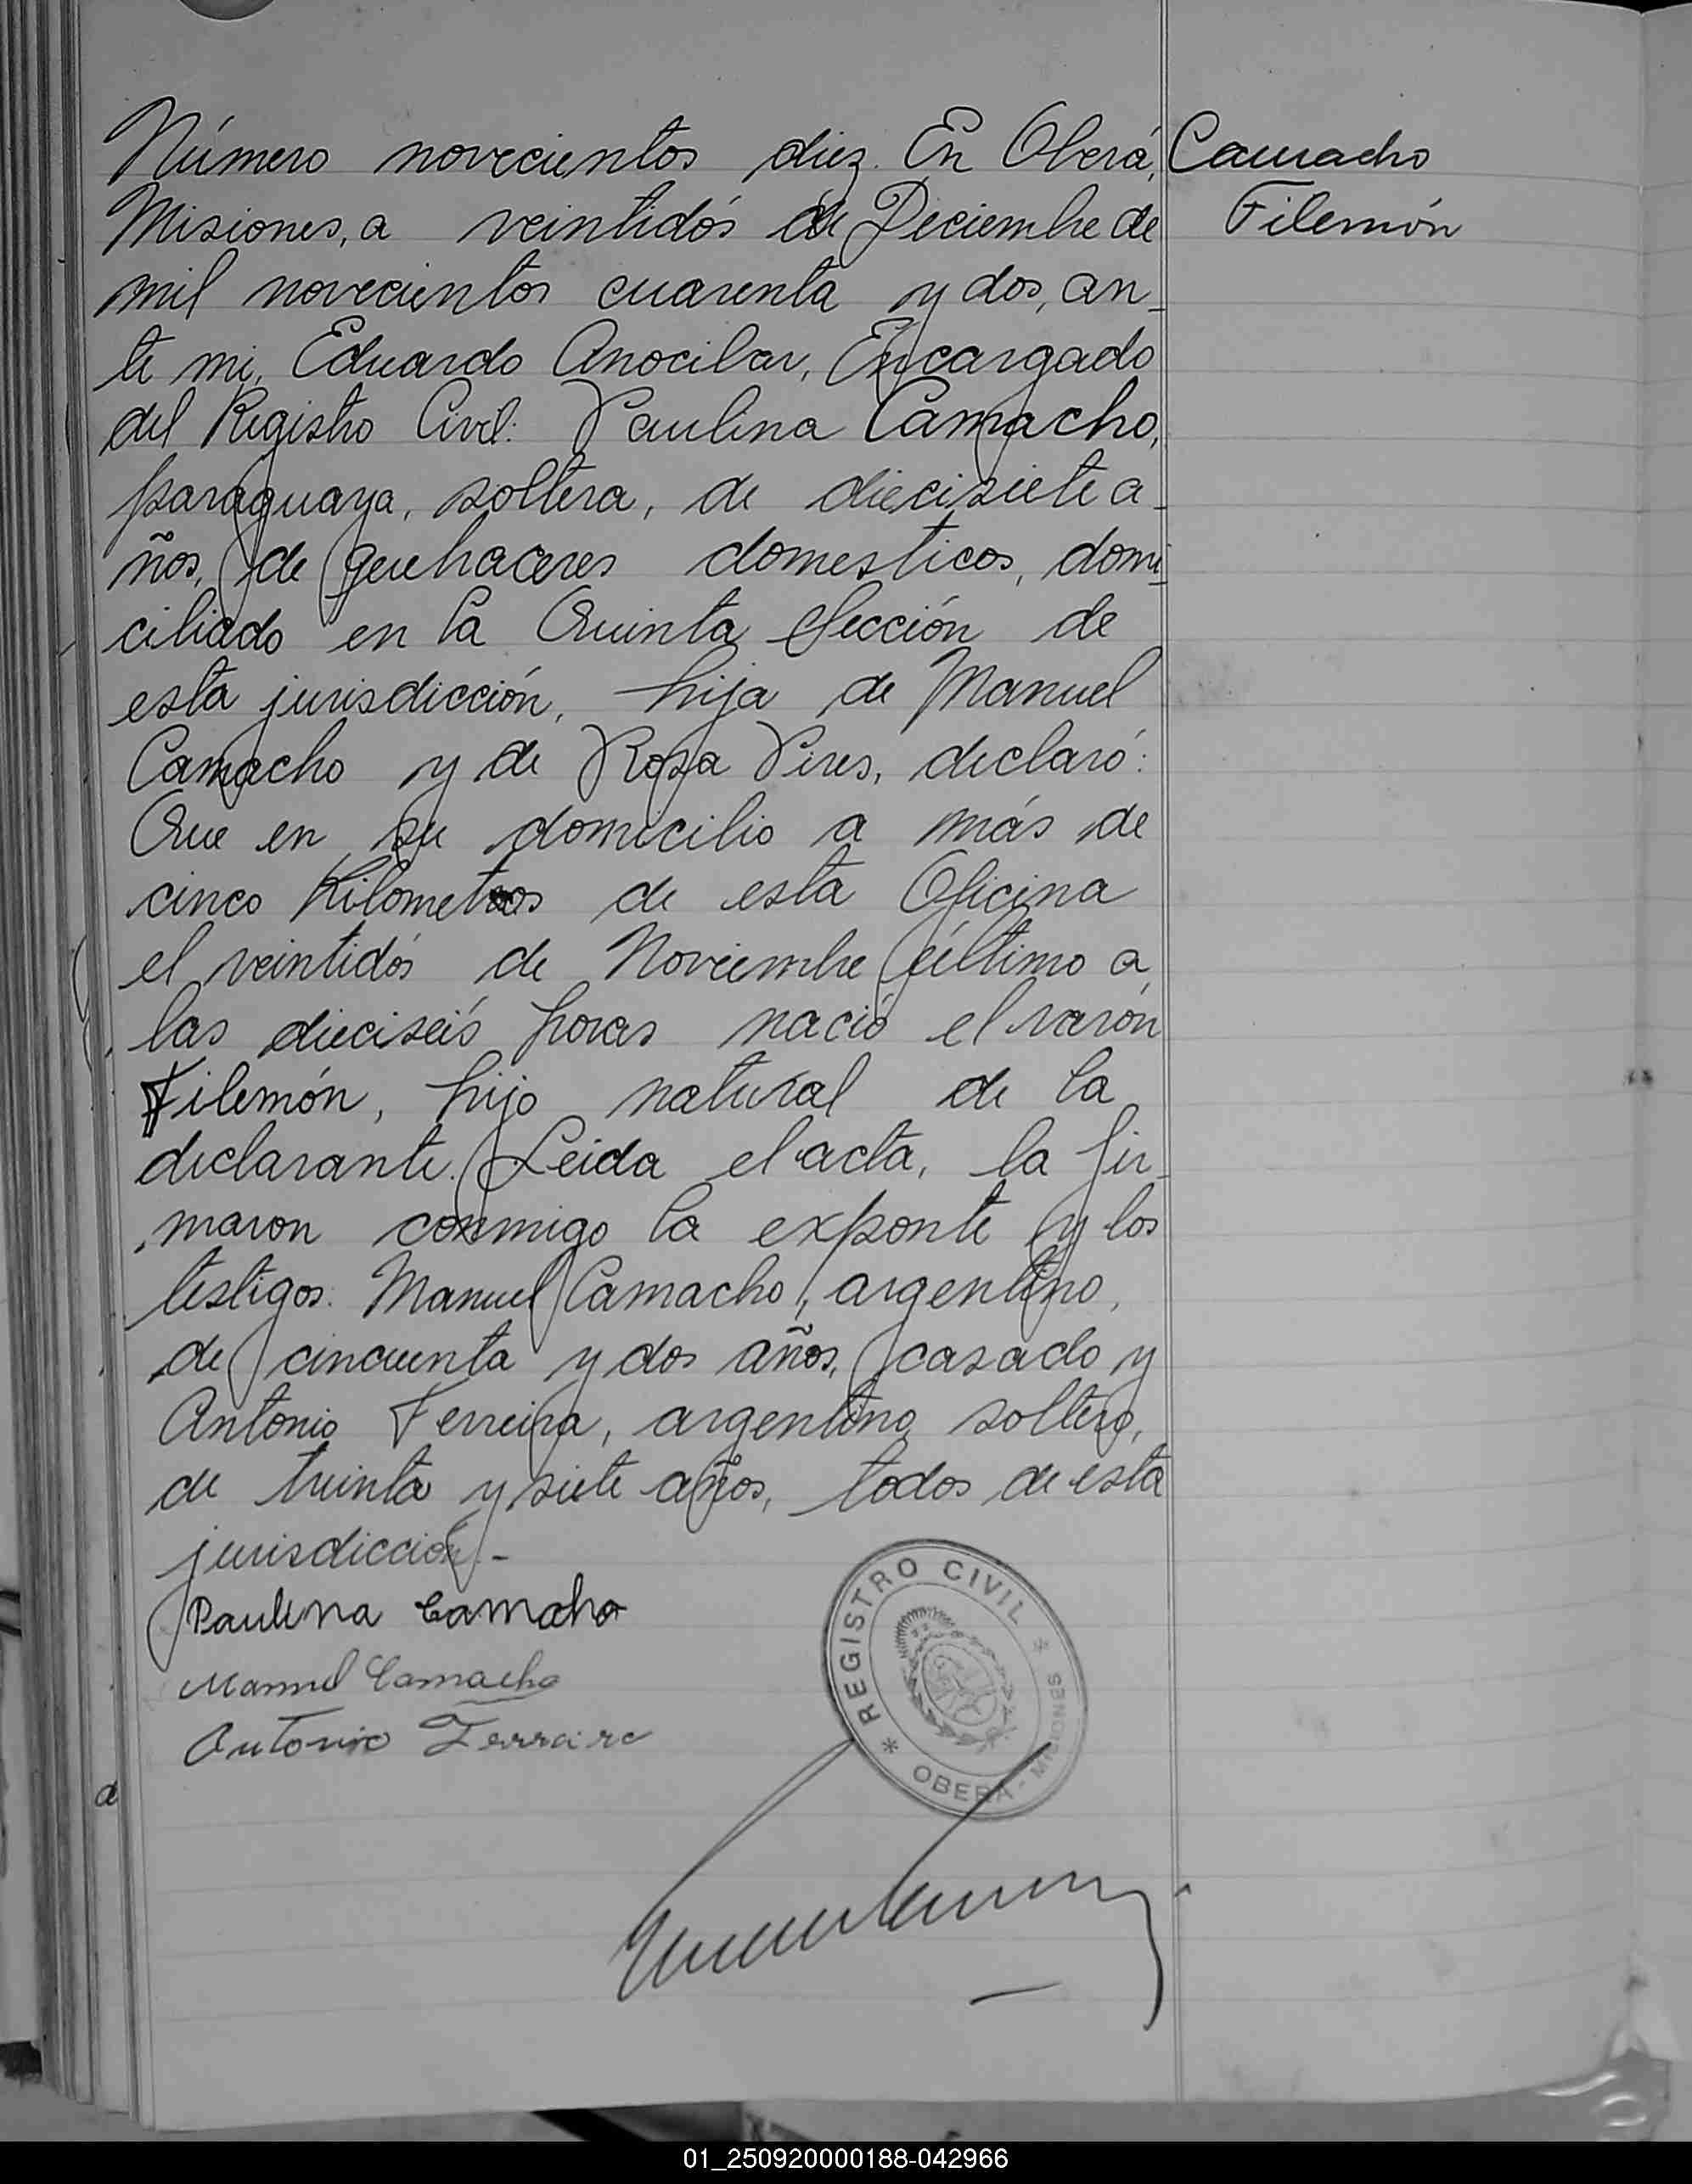 Número novecientos diez. En Oberá,
Camacho
Misiones, a veintidós de Diciembre de
Filemón
mil novecientos cuarenta y dos, an_
te mi, Eduardo Anocibar, Encargado
del Registro Civil: Paulina Camacho,
paraguaya, soltera, de diecisiete a_
ños, de quehaceres domesticos, domi_
ciliado en la Quinta Sección de
esta jurisdicción, hija de Manuel
Camacho y de Rosa Pires, declaró:
Que en su domicilio a más de
cinco Kilometros de esta Oficina
el veintidós de Noviembre último a
las dieciseís horas nació el varón
Filemón, hijo natural de la
declarante. Leida el acta, la fir_
maron conmigo la exponte y los
testigos: Manuel Camacho, argentino,
de cincuenta y dos años, casado y
Antonio Ferreira, argentino soltero,
de treinta y siete años, todos de esta
jurisdicción.-
Paulina Camaho
Manuel Camacho
Antonio Ferraira
* REGISTRO CIVIL *
OBERÁ - MISIONES
a
01_250920000188-042966